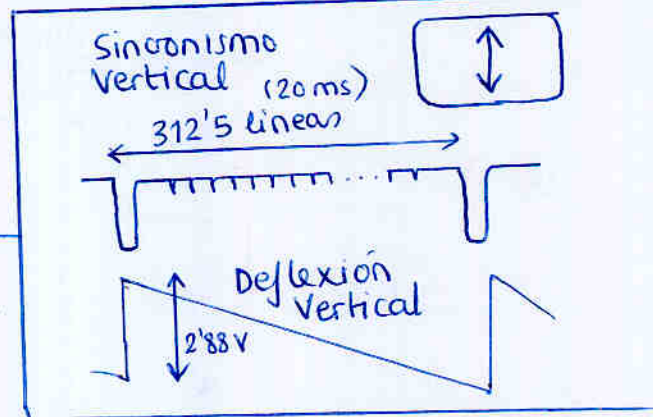 Sincronismo
Vertical (20 ms)
312'5 lineas
Deflexión
Vertical
2'88 V